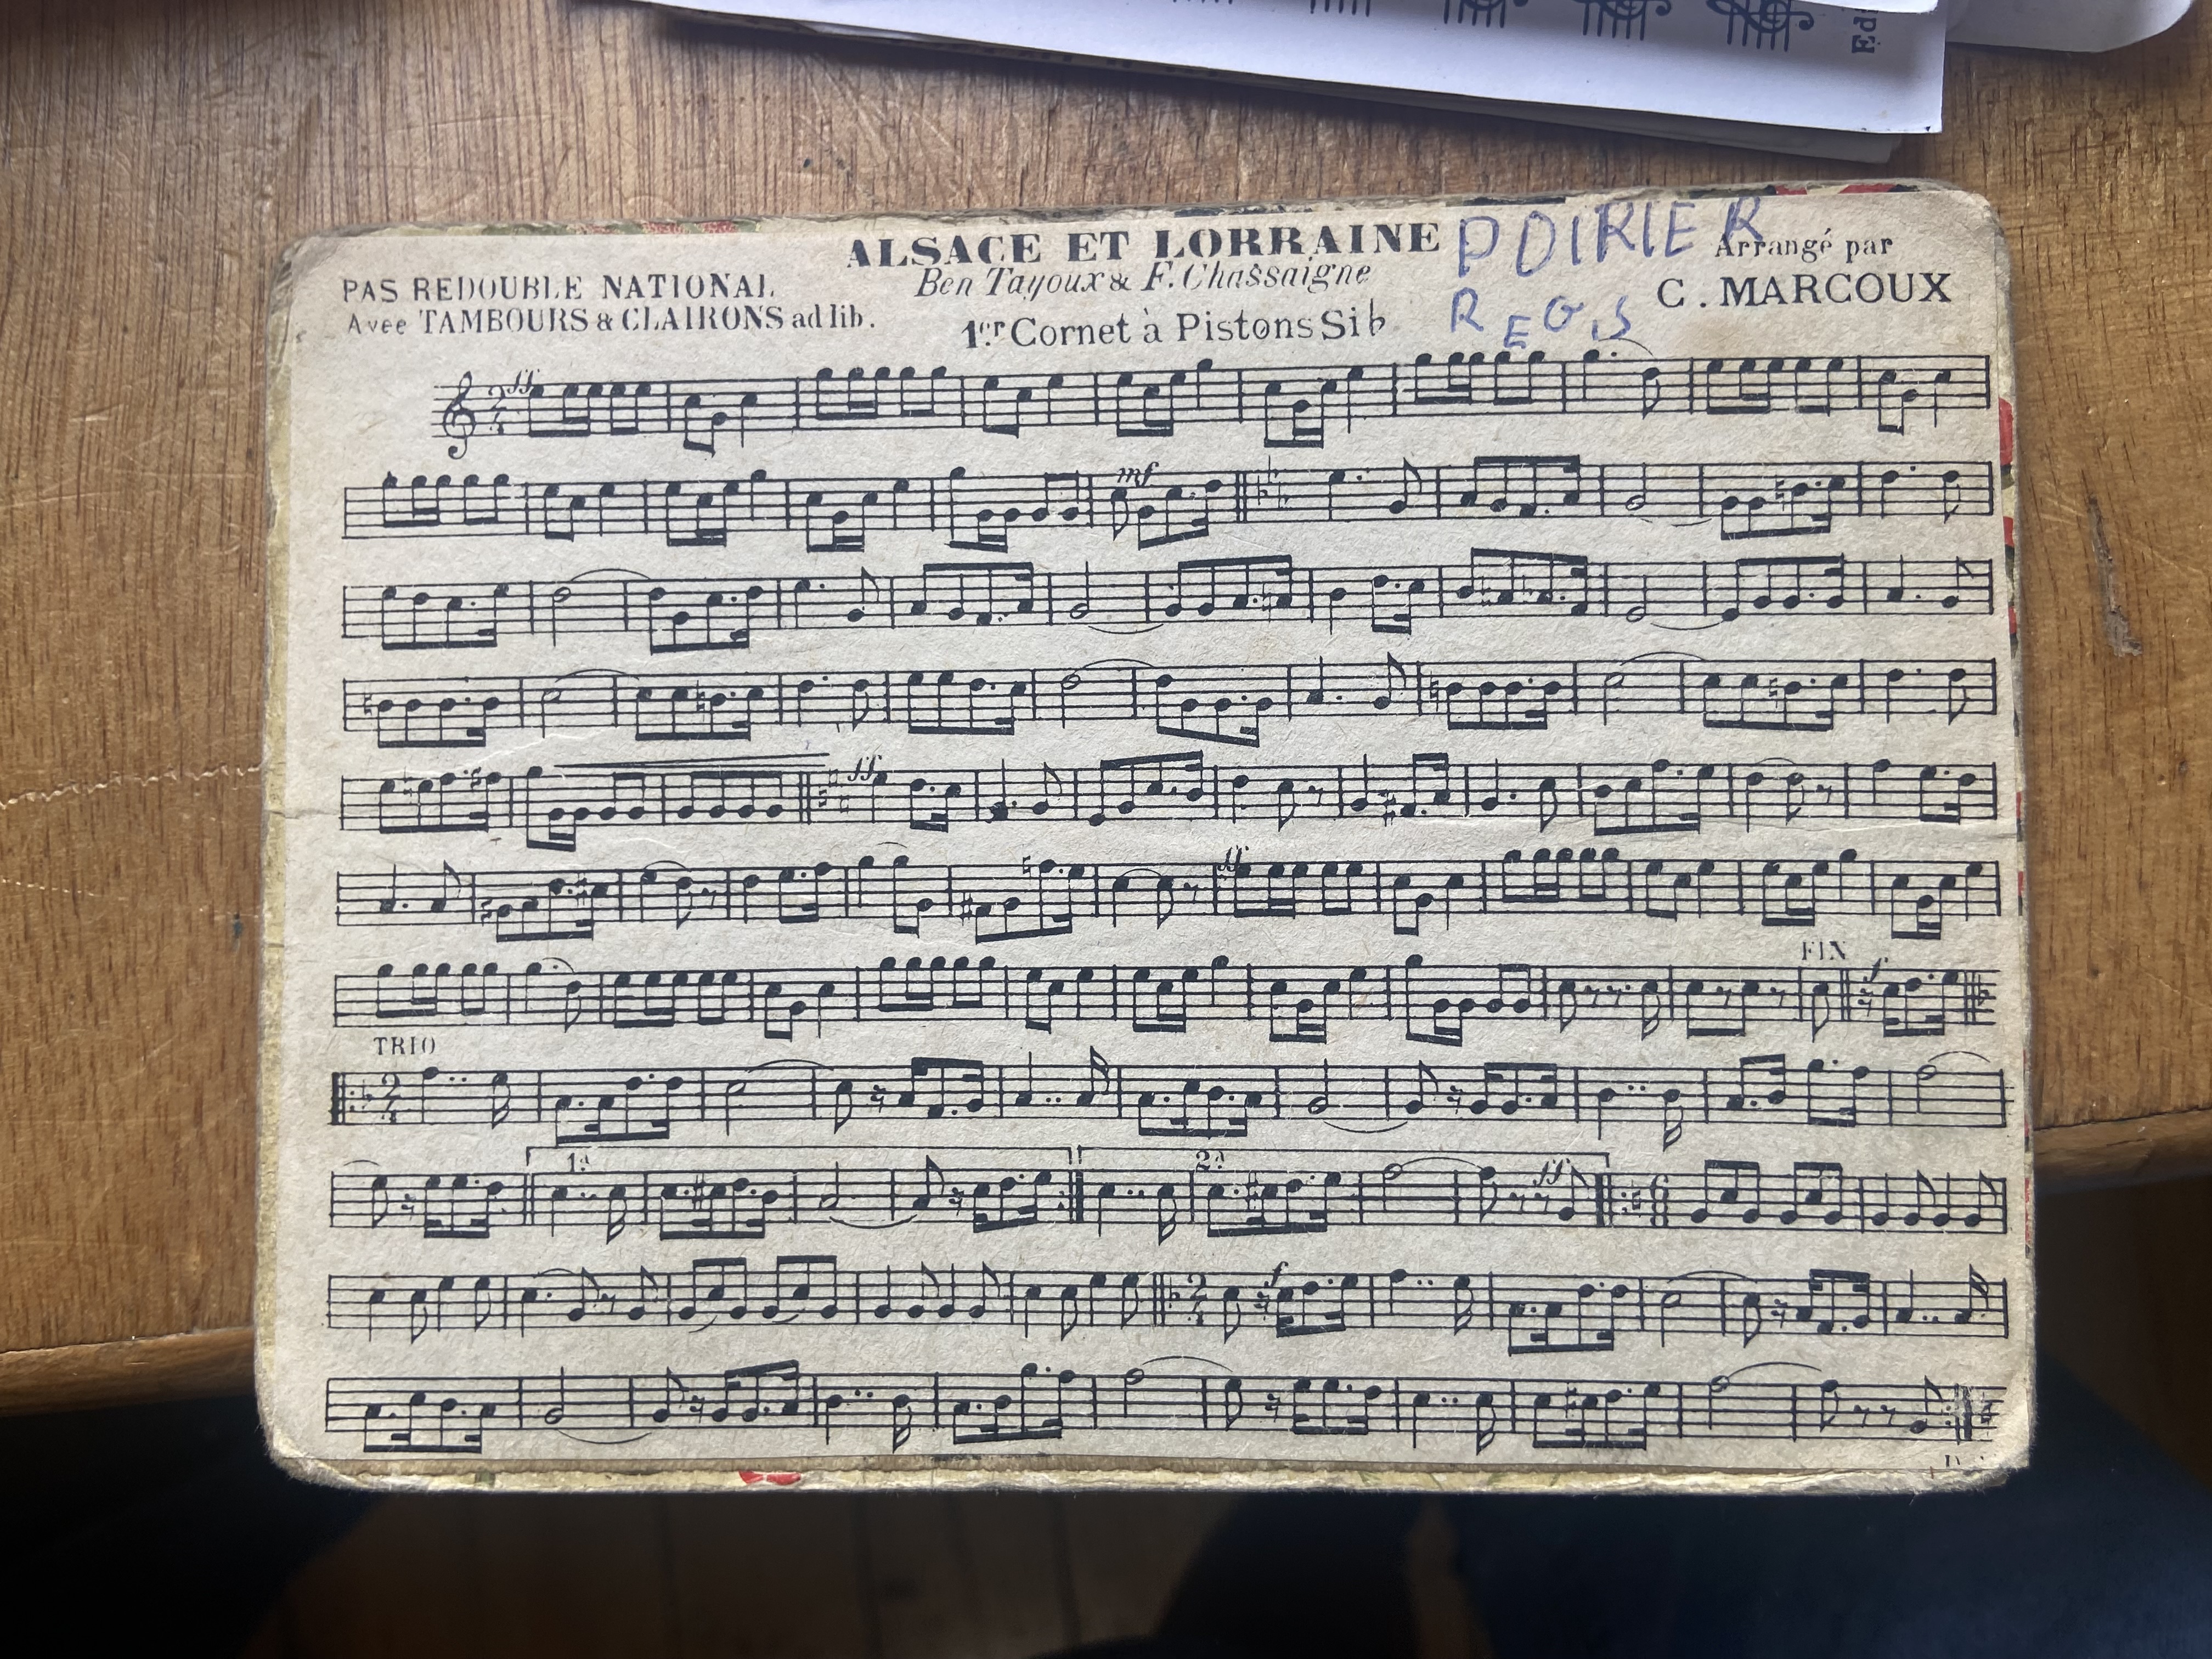 Ed
ALSACE ET LORRAINE
POIRIER
Arrangé par
PAS REDOUBLÉ NATIONAL
Ben Tayoux & F. Chassaigne
C. MARCOUX
Avec TAMBOURS & CLAIRONS ad lib.
1er Cornet à Pistons Si b
REGIS
ff
mf
ff
ff
FIN
f
TRIO
1a
2a
ff
f